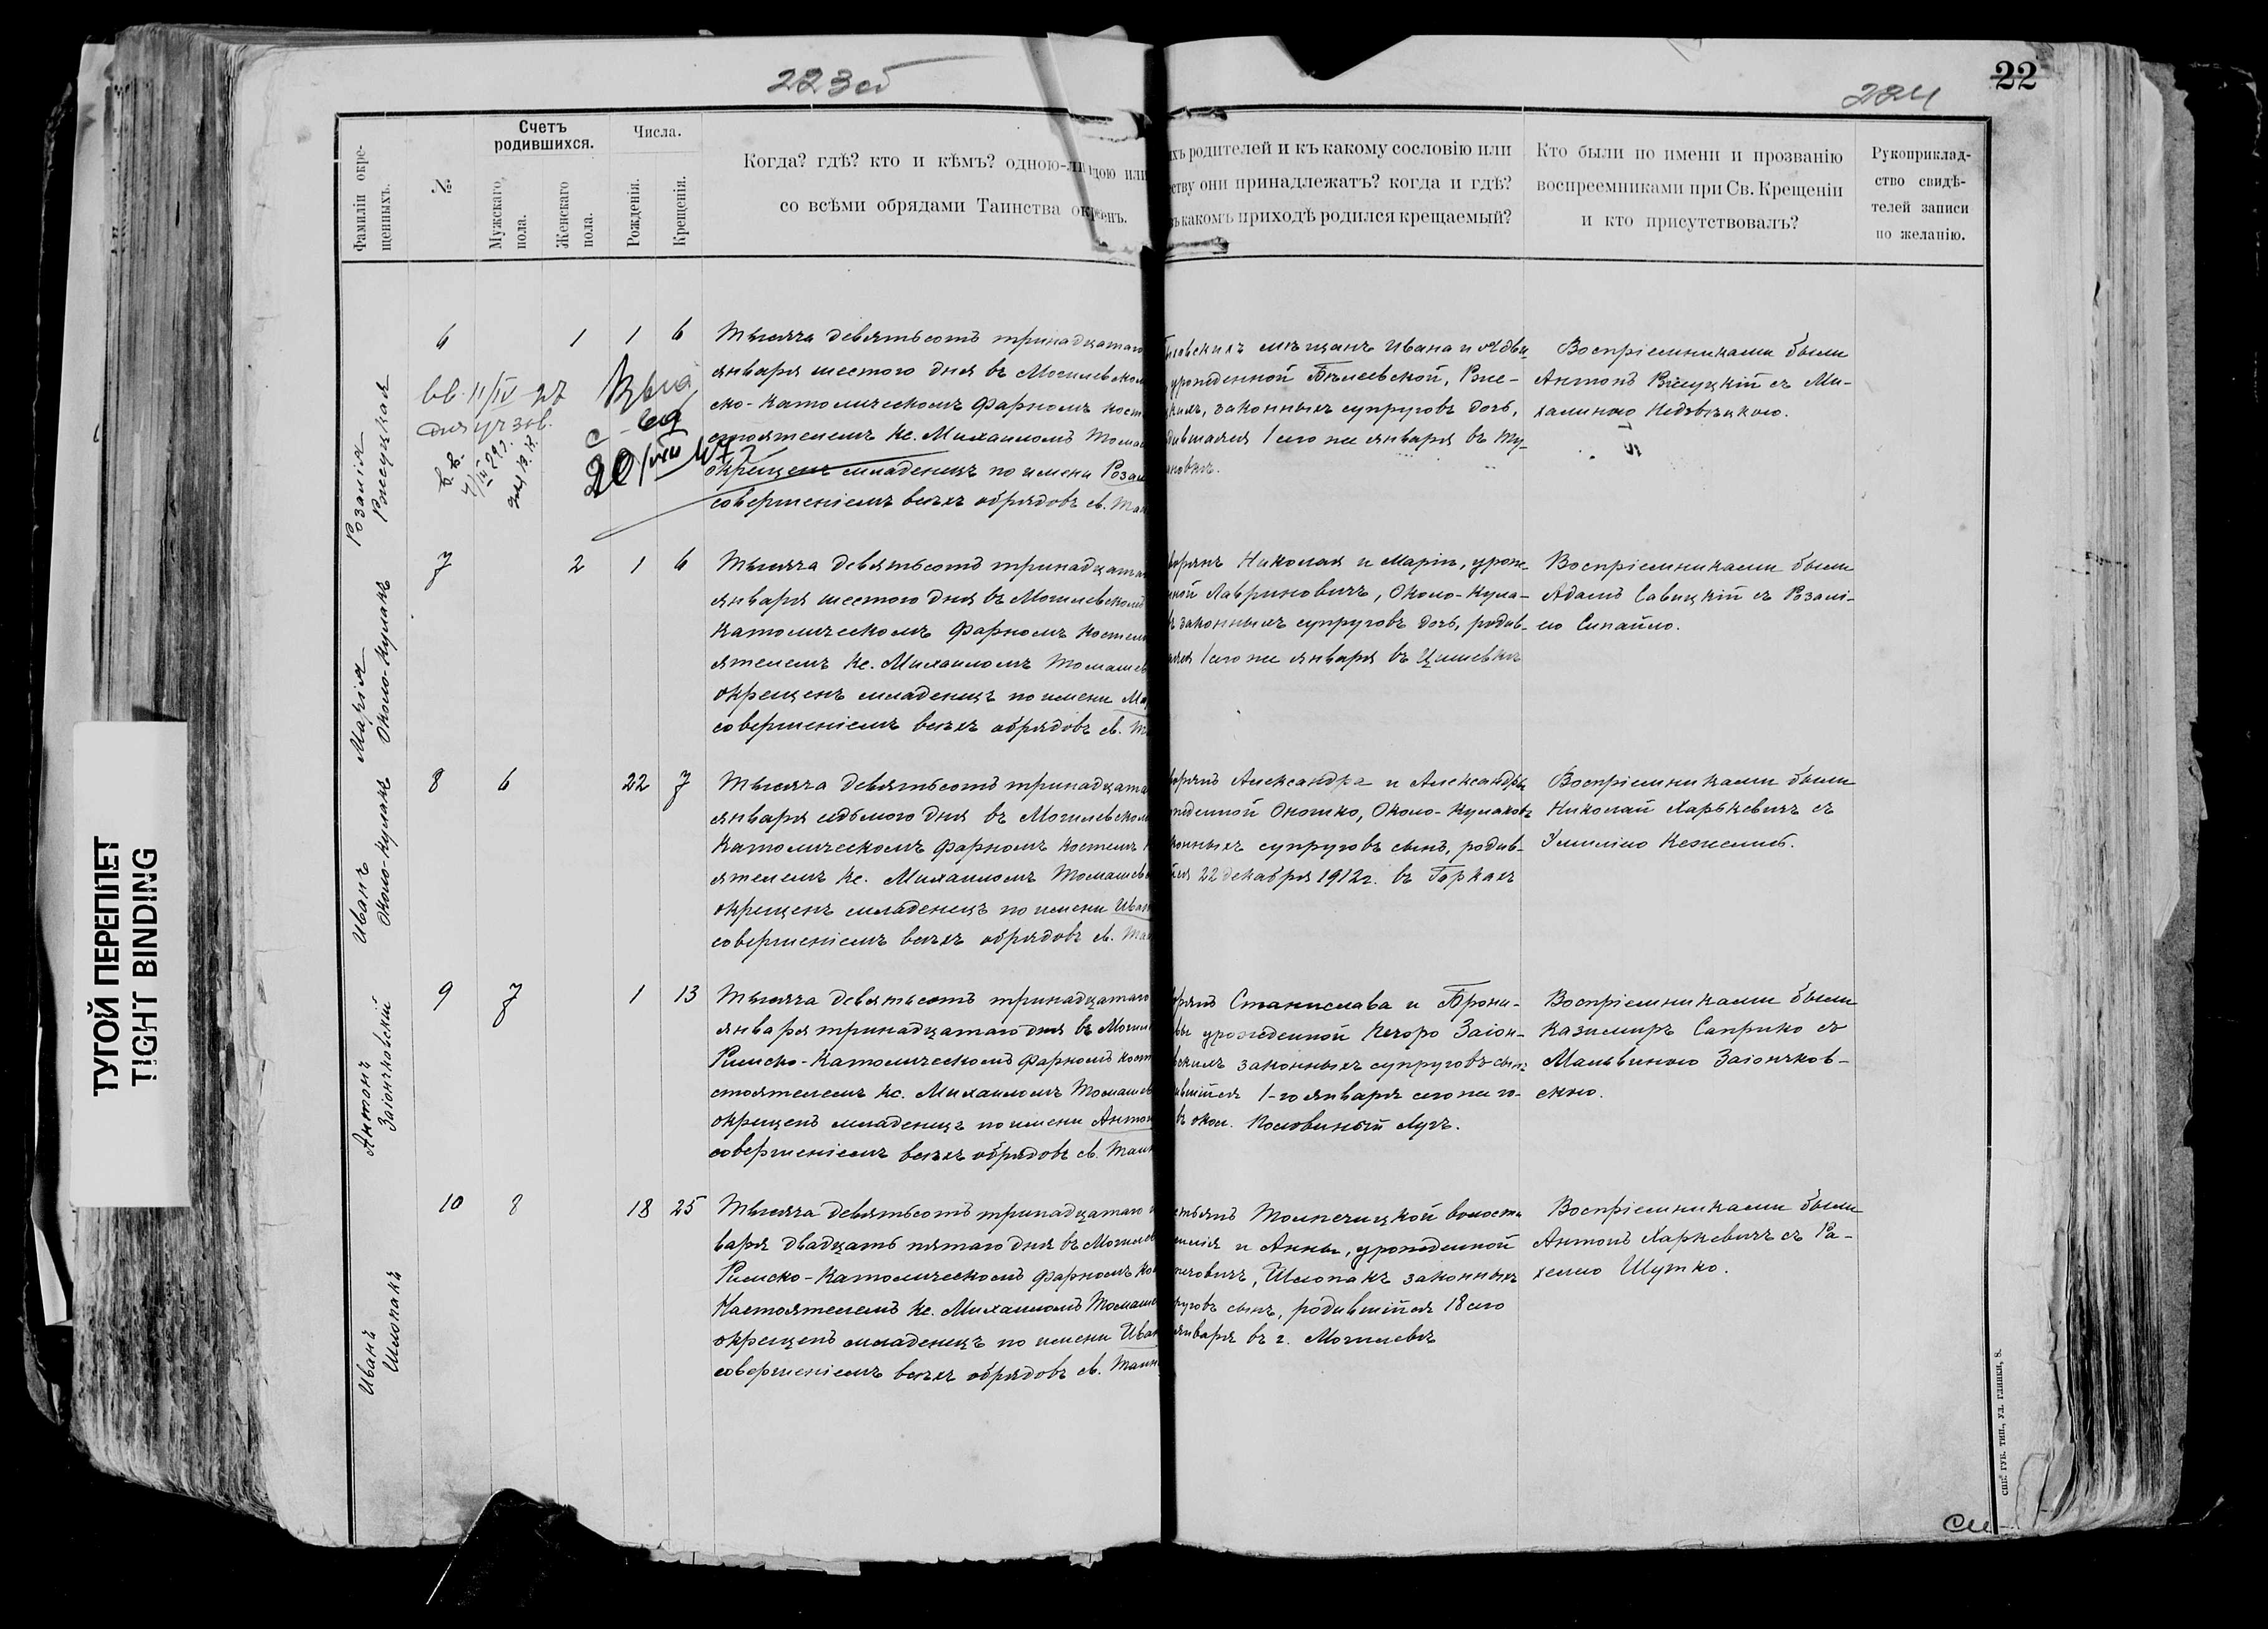 223об
22
224
Фамиліи окре-
щенныхъ.
№
Счетъ
родившихся.
Мужскаго
пола.
Женскаго
пола.
Числа.
Рожденія.
Крещенія.
Когда? гдѣ? кто и кѣмъ? одною-ли
дою или
со всѣми обрядами Таинства окр
енъ.
ихъ родителей и къ какому сословію или
ству они принадлежатъ? когда и гдѣ?
какомъ приходѣ родился крещаемый?
Кто были по имени и прозванію
воспреемниками при Св. Крещеніи
и кто присутствовалъ?
Рукоприклад-
ство свидѣ-
телей записи
по желанію.
Розалія
6 1 1 6
20/VIII 47
Тысяча девятьсотъ тринадцатаго
января шестого дня въ Могилевском
ско-Католическомъ Фарномъ кост
стоятелемъ Кс. Михаиломъ Томаш
окрещенъ младенецъ по имени Розал
совершеніемъ всѣхъ обрядовъ св. Таи
левскихъ мѣщанъ Ивана и Ядви
урожденной Бѣлевской,
законныхъ супруговъ дочь,
дившаяся 1 сего же января въ
новкѣ.
Воспріемниками были
Антонъ съ Ми-
халиною
Марія
Около-Кулакъ
7 2 1 6
Тысяча девятьсотъ тринадцата
января шестого дня въ Могилевском
Католическомъ Фарномъ Костел
ятелемъ Кс. Михаиломъ Томашев
окрещенъ младенецъ по имени Ма
совершеніемъ всѣхъ обрядовъ св. Т
ворянъ Николая и Маріи, урож
ной Лавриновичъ, Около-Кула-
въ законныхъ супруговъ дочь, родив-
аяся 1 сего же января въ
Воспріемниками были
Адамъ Савицкій съ Розалі-
ею Синайло.
Иванъ
Около-Кулакъ
8 6 22 7
Тысяча девятьсотъ тринадцата
января седьмого дня въ Могилевском
Католическомъ Фарномъ Костелѣ
ятелемъ Кс. Михаиломъ Томашев
окрещенъ младенецъ по имени Иван
совершеніемъ всѣхъ обрядовъ св. Таи
ворянъ Александра и Александры
жденной Околко, Около-Кулаковъ
конныхъ супруговъ сынъ, родив-
йся 22 декабря 1912г. въ Горкахъ
Воспріемниками были
Николай Харькевичъ съ
Эмиліею
Антонъ
Заіончковскій
9 7 1 13
Тысяча девятьсотъ тринадцатаго
января тринадцатаго дня въ Могил
Римско-Католическомъ Фарномъ кост
стоятелемъ кс. Михаиломъ Томашев
окрещенъ младенецъ по имени Антон
совершеніемъ всѣхъ обрядовъ св. Таин
орянъ Станислава и Брони-
вы урожденной Кечоро Заіон-
вскихъ законныхъ супруговъ сынъ
ившійся 1-го января сего же го-
въ окол. Половинный Лугъ.
Воспріемниками были
Казимиръ Саприко съ
Мальвиною Заіончков-
скою.
Иванъ
Шлопакъ
10 8 18 25
Тысяча девятьсотъ тринадцатаго я
варя двадцать пятаго дня въ Могилев
Римско-Католическомъ Фарномъ Ко
Настоятелемъ Кс. Михаиломъ Томаше
окрещенъ младенецъ по имени Иван
совершеніемъ всѣхъ обрядовъ св. Таин
стьянъ Толпечицкой волости
и Анны, урожденной
Шлопакъ законныхъ
руговъ сынъ, родившійся 18 сего
января въ г. Могилевѣ
Воспріемниками были
Антонъ Харкевичъ съ Ра-
хелею Шутко.
ТУГОЙ ПЕРЕПЛЕТ
TIGHT BINDING
СПБ. ГУБ. ТИП., УЛ. ГЛИНКИ, 8.
См